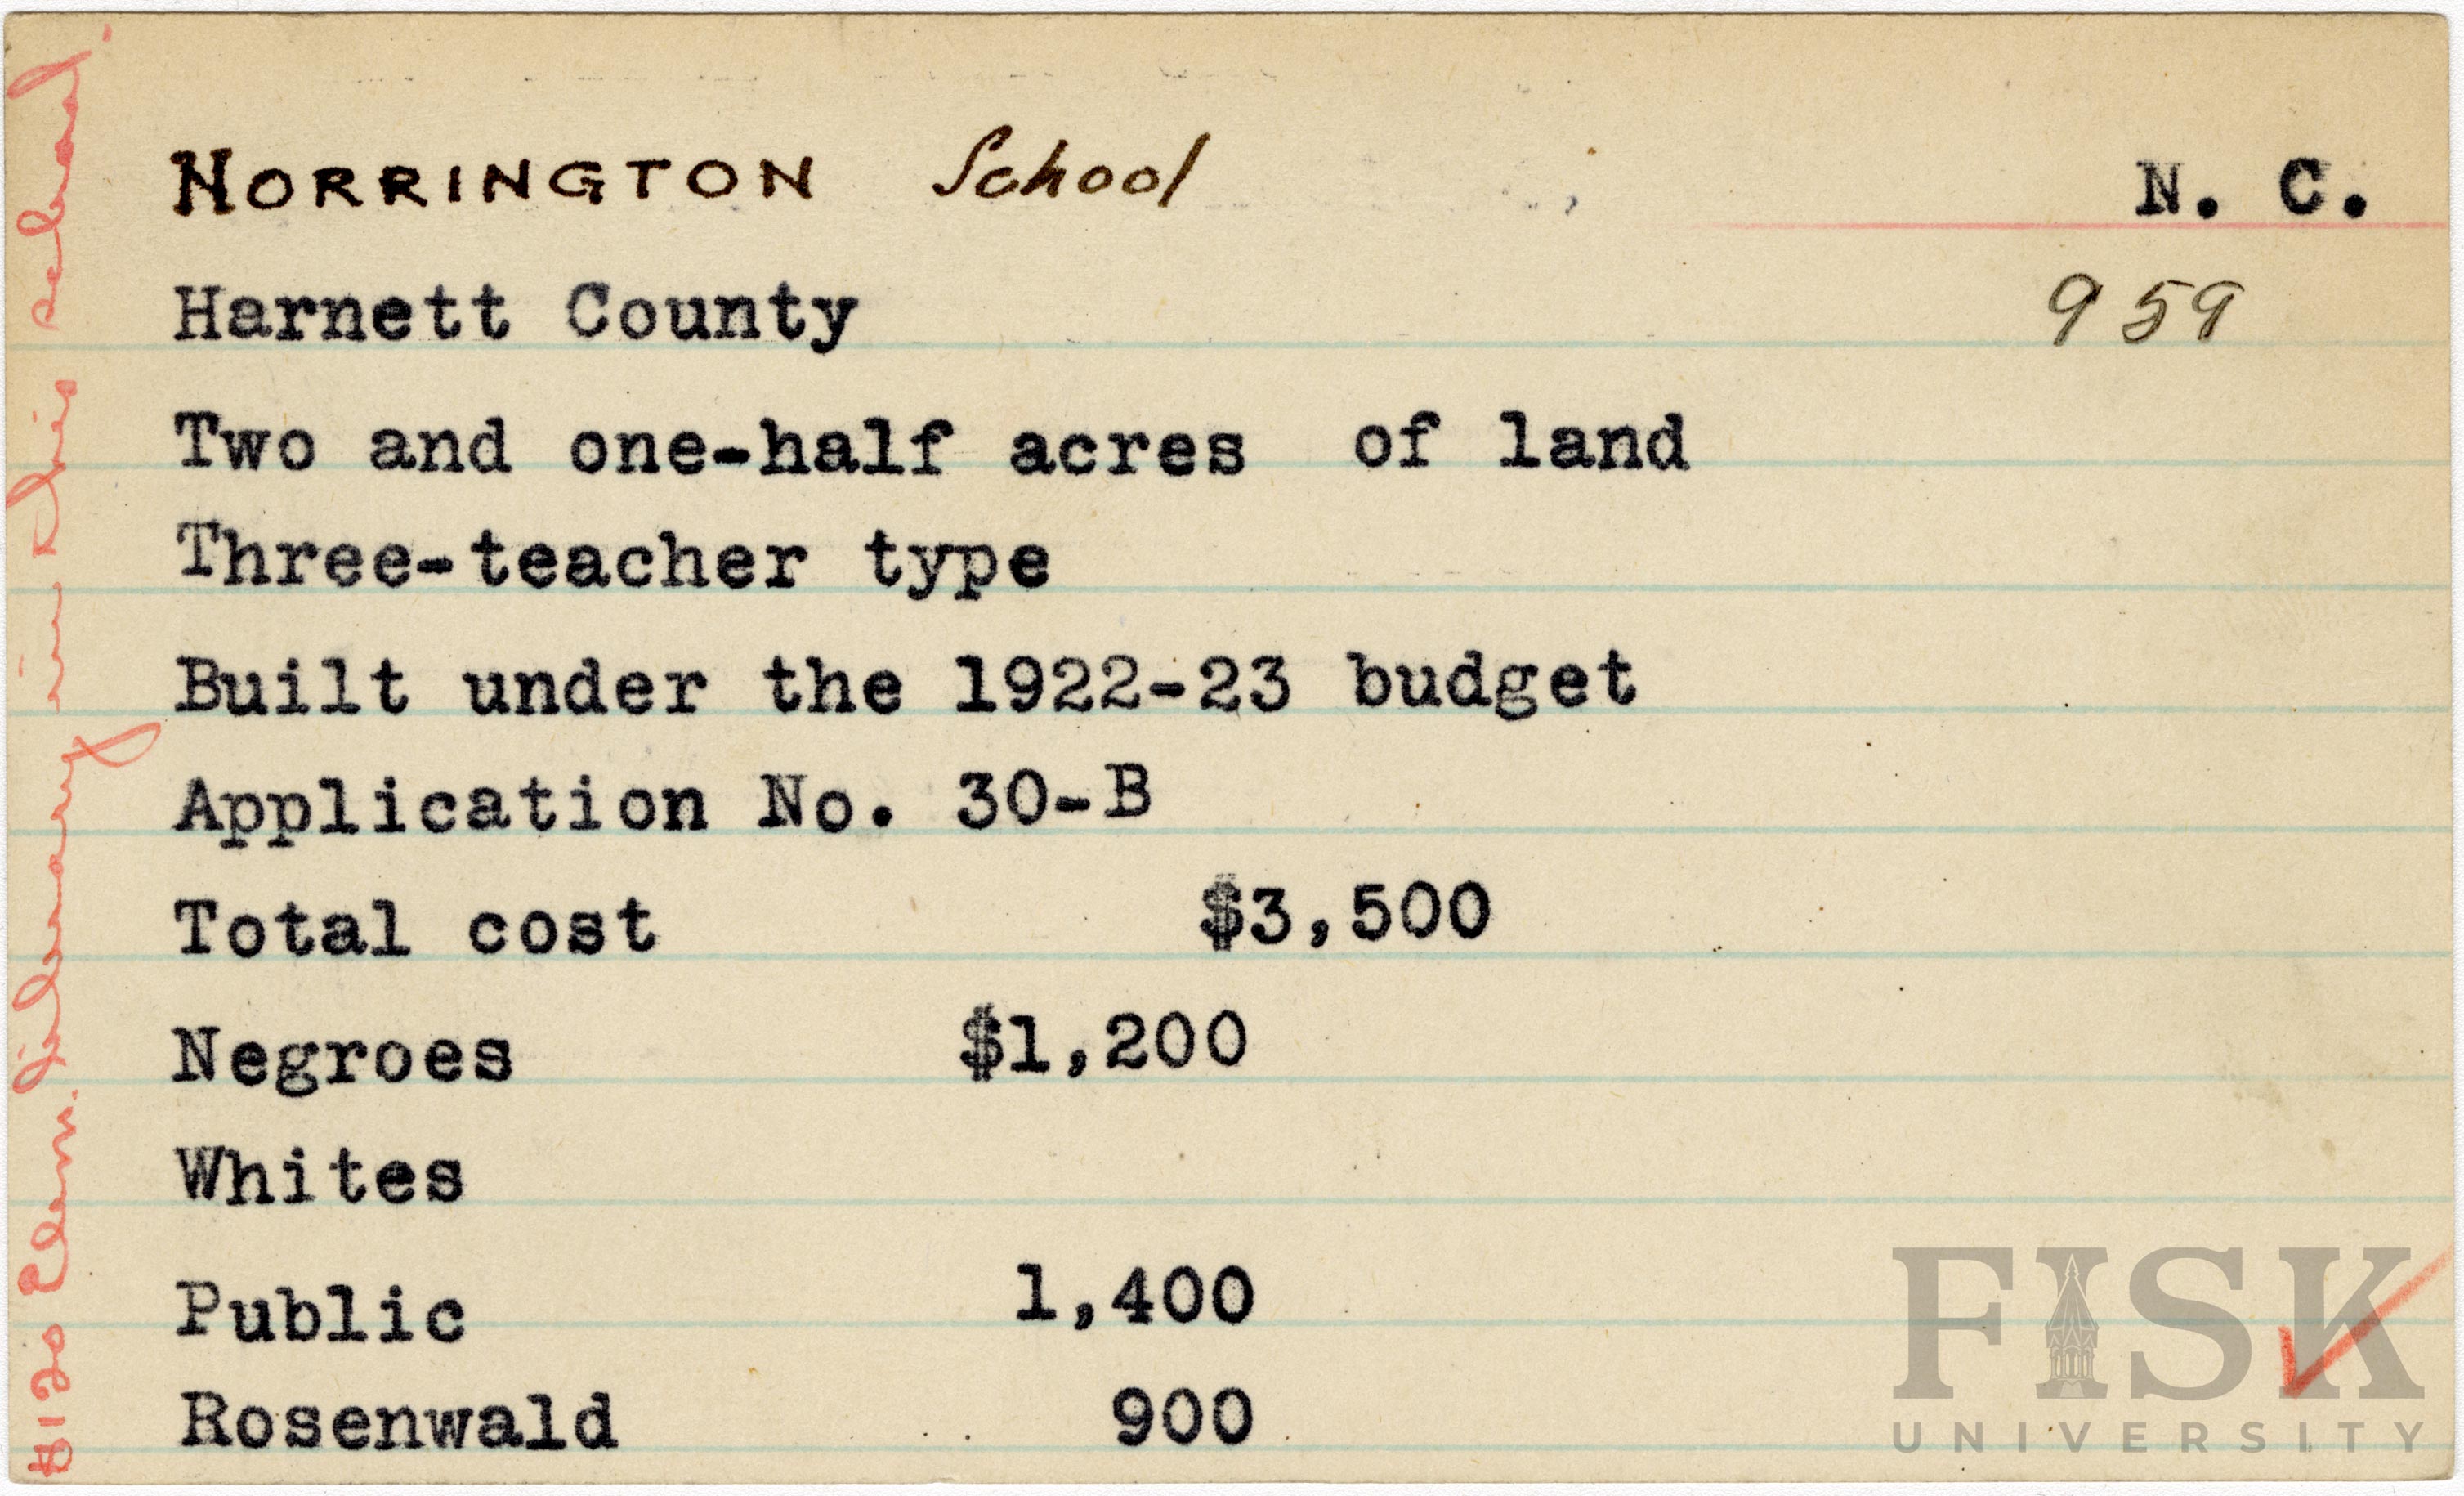 NORRINGTON School N. C.
Harnett County 959
Two and one-half acres of land
Three-teacher type
Built under the 1922-23 budget
Application No. 30-B
Total cost $3,500
Negroes $1,200
Whites
Public 1,400
Rosenwald 900
$120 Elem. library in this school.
FISK
UNIVERSITY